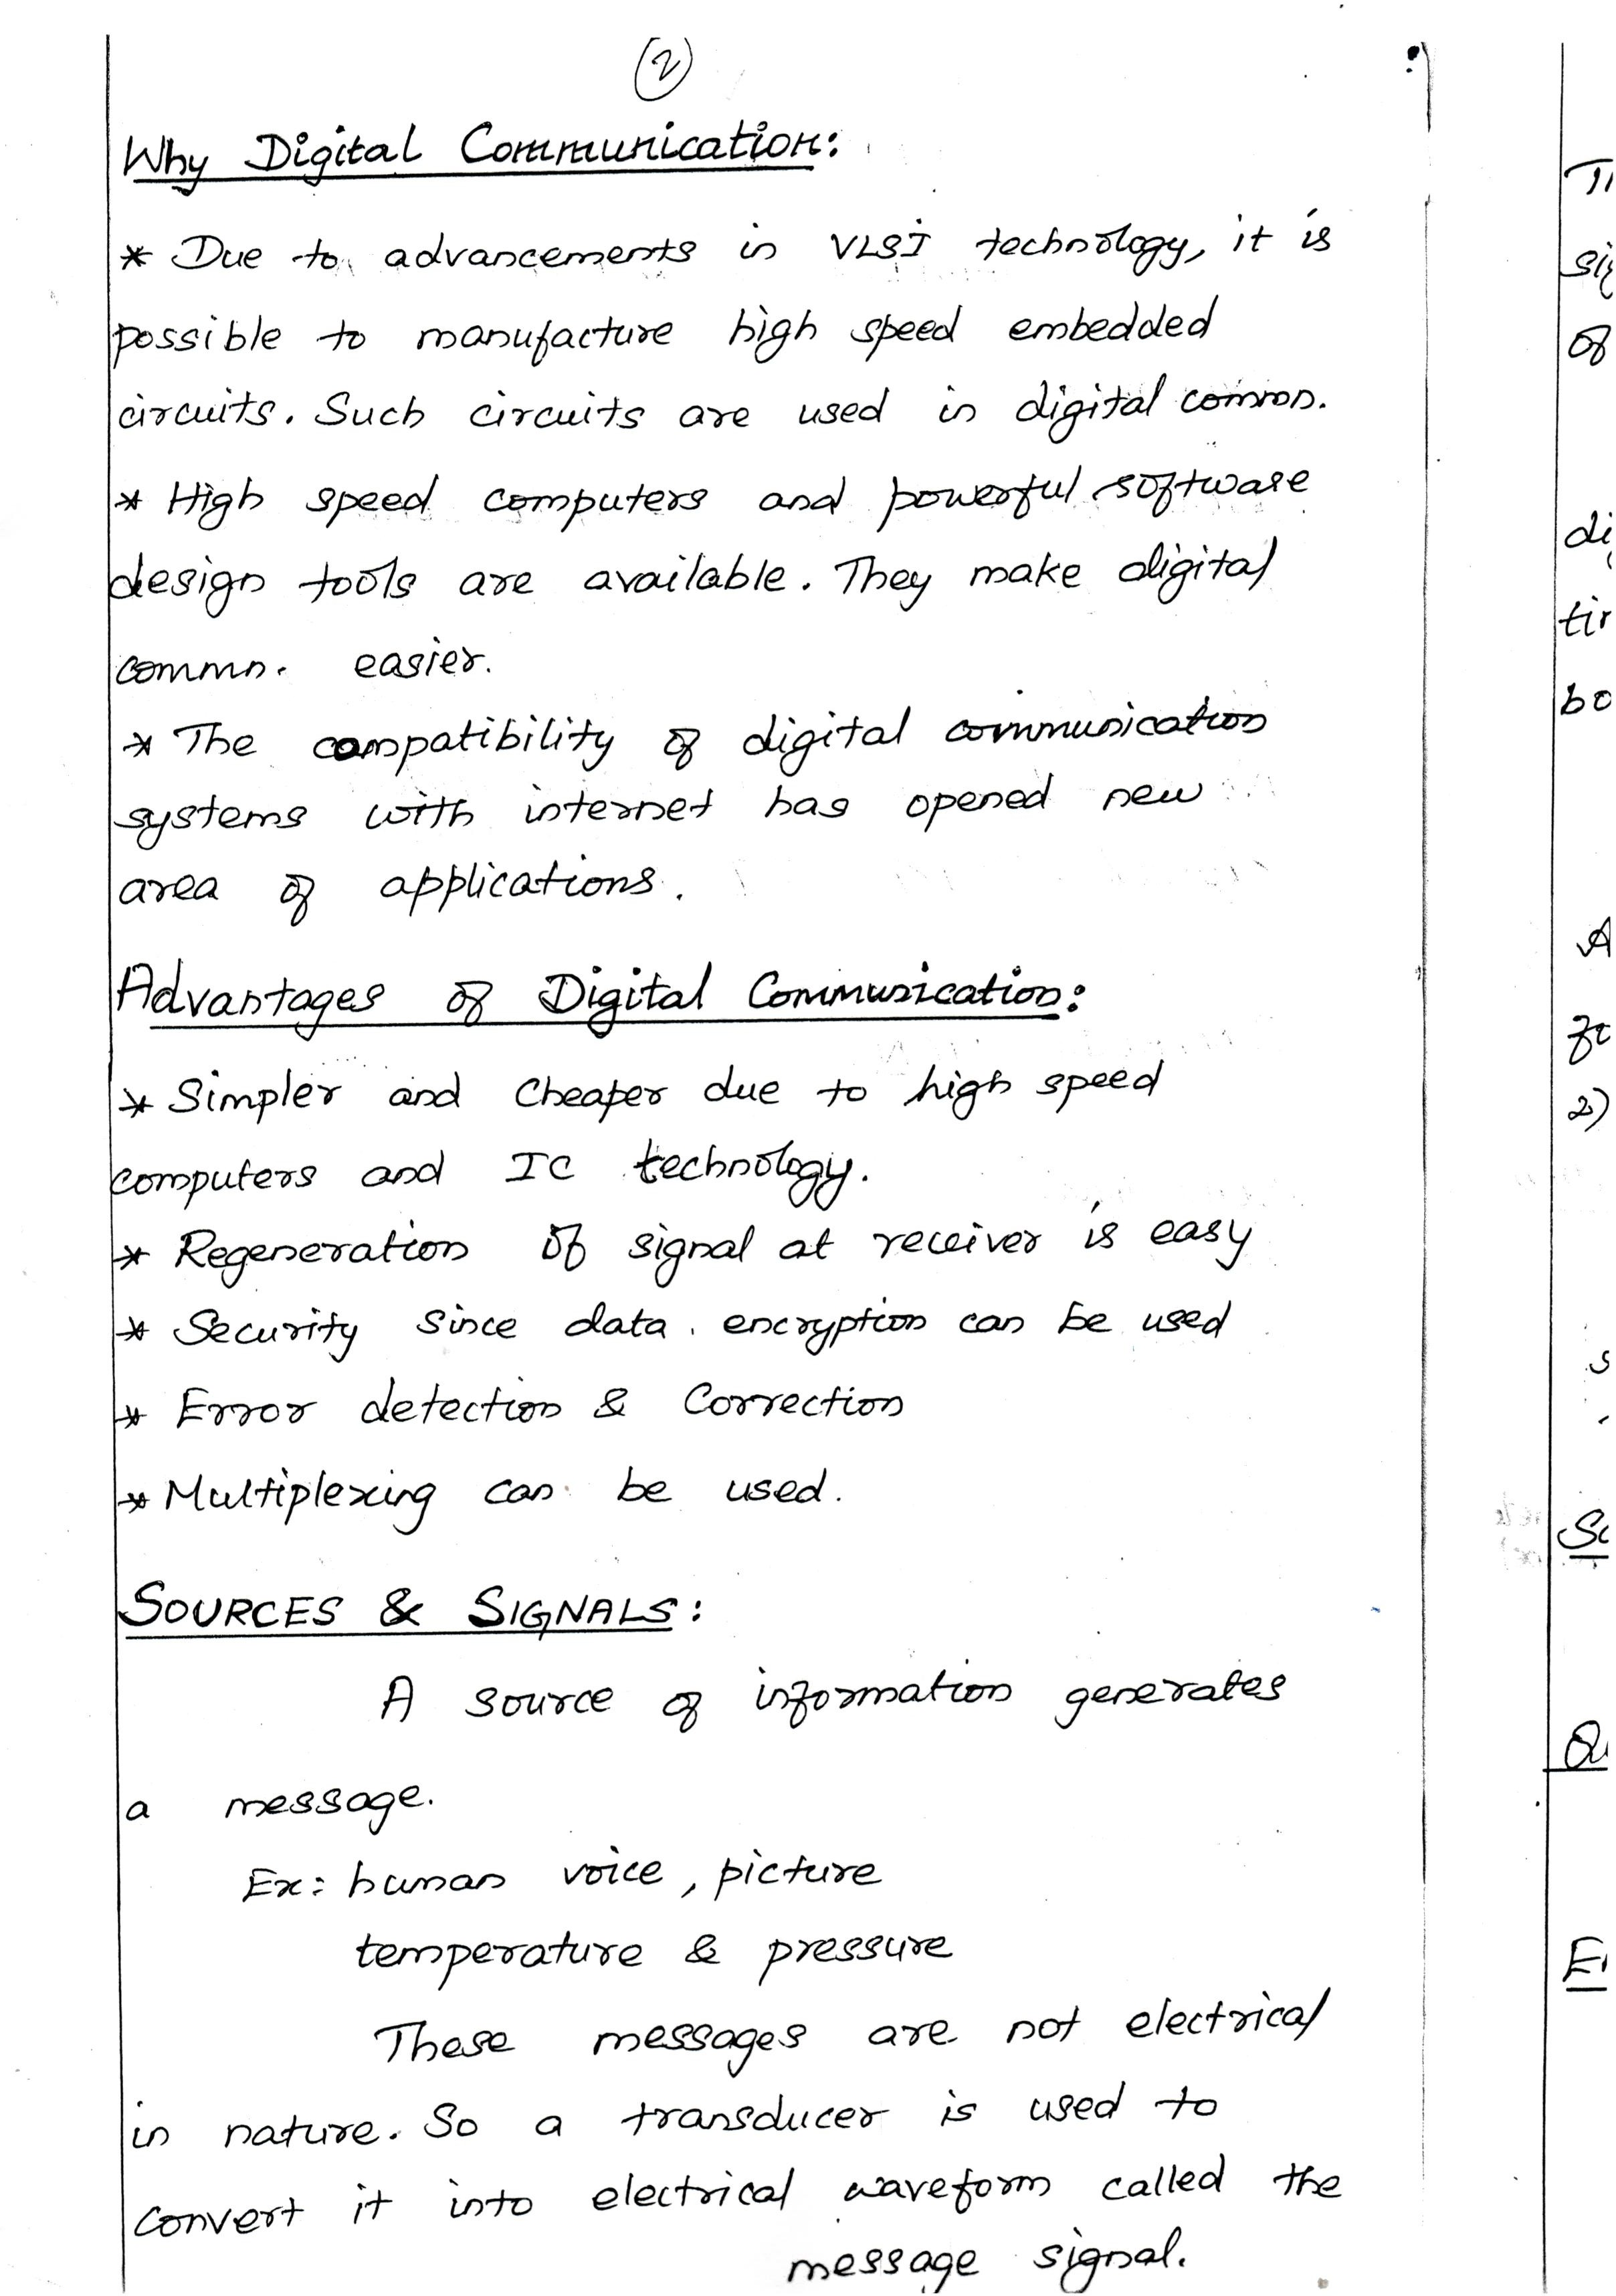 (2)
Why Digital Communication:
* Due to advancements in VLSI technology, it is
possible to manufacture high speed embedded
circuits. Such circuits are used in digital commn.
* High speed computers and powerful software
design tools are available. They make digital
commn. easier.
* The compatibility of digital communication
systems with internet has opened new
area of applications.
Advantages of Digital Communication:
* Simpler and Cheaper due to high speed
computers and IC technology.
* Regeneration of signal at receiver is easy
* Security since data encryption can be used
* Error detection & Correction
* Multiplexing can be used.
SOURCES & SIGNALS:
A source of information generates
a message.
Ex: human voice, picture
temperature & pressure
These messages are not electrical
in nature. So a transducer is used to
convert it into electrical waveform called the
message signal.